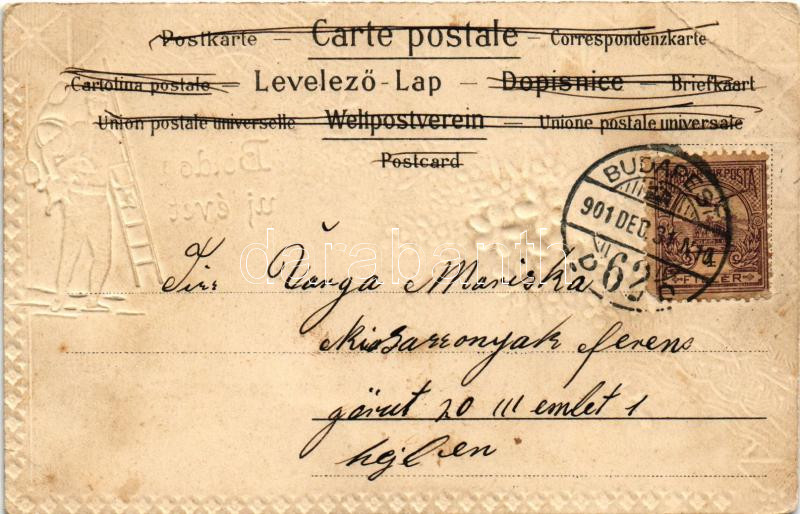 Postkarte — Carte postale — Correspondenzkarte
Cartolina postale — Levelező-Lap — Dopisnice — Briefkaart
Union postale universelle — Weltpostverein — Unione postale universale
Postcard
BUDAPEST
901 DEC 31
62
POSTA
FILLER
Boldog
uj évet
darabanth
Varga Mariska
kisasszonynak ferenc
görut 20 III emlet 1
hejben